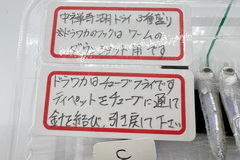 中禅寺湖ドライ3種盛り
※ドラワカのフックは ワームの
ダウンショット用です
ドラワカはチューブフライです
ティペットをチューブに通して
針を結び、引き戻して下さい
C